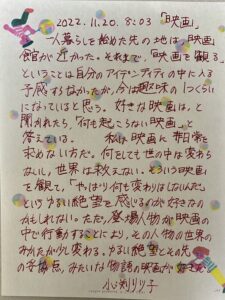 2022.11.20. 8:03 「映画」
一人暮らしを始めた先の地は、映画
館が近かった。それまで、「映画を観る」
ということは自分のアイデンティティの中に入る
予感すらなかったが、今は趣味の1つくらい
になっていると思う。好きな映画は、と
聞かれたら、「何も起こらない映画」と
答えている。 私は映画に
求めない方だ。何をしても世の中は変わら
ないし、世界は救えない。そういう映画
を観て、「やっぱり何も変わりはしないんだ」
というゆるい絶望を感じるのが好きなの
かもしれない。ただ、登場人物が映画の
中で行動することにより、その人物の世界の
みかたが少し変わる。ゆるい絶望とその先
の みたいな物語の映画が好き